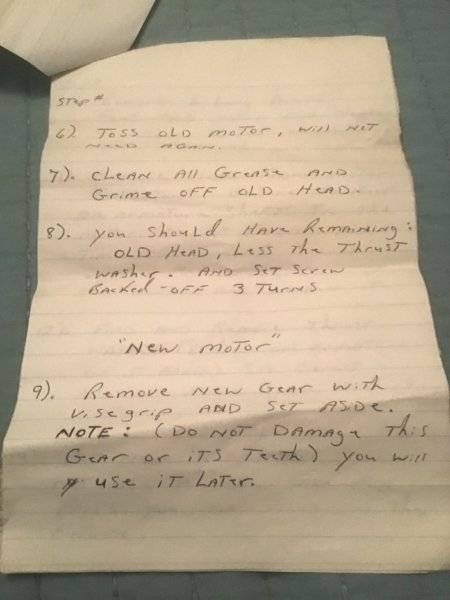 STEP #
6) TOSS OLD MOTOR, WILL NOT
NEED AGAIN.
7). CLEAN All Grease AND
Grime OFF OLD HEAD.
8). you should Have Remaining:
OLD HEAD, Less The Thrust
washer. AND SET Screw
Backed-OFF 3 TURNS
"New MOTOR"
9). Remove New Gear with
Visegrip AND SET ASIDE.
NOTE: (DO NOT DAMAge This
Gear or iTS TeeTh) you will
use iT LATer.